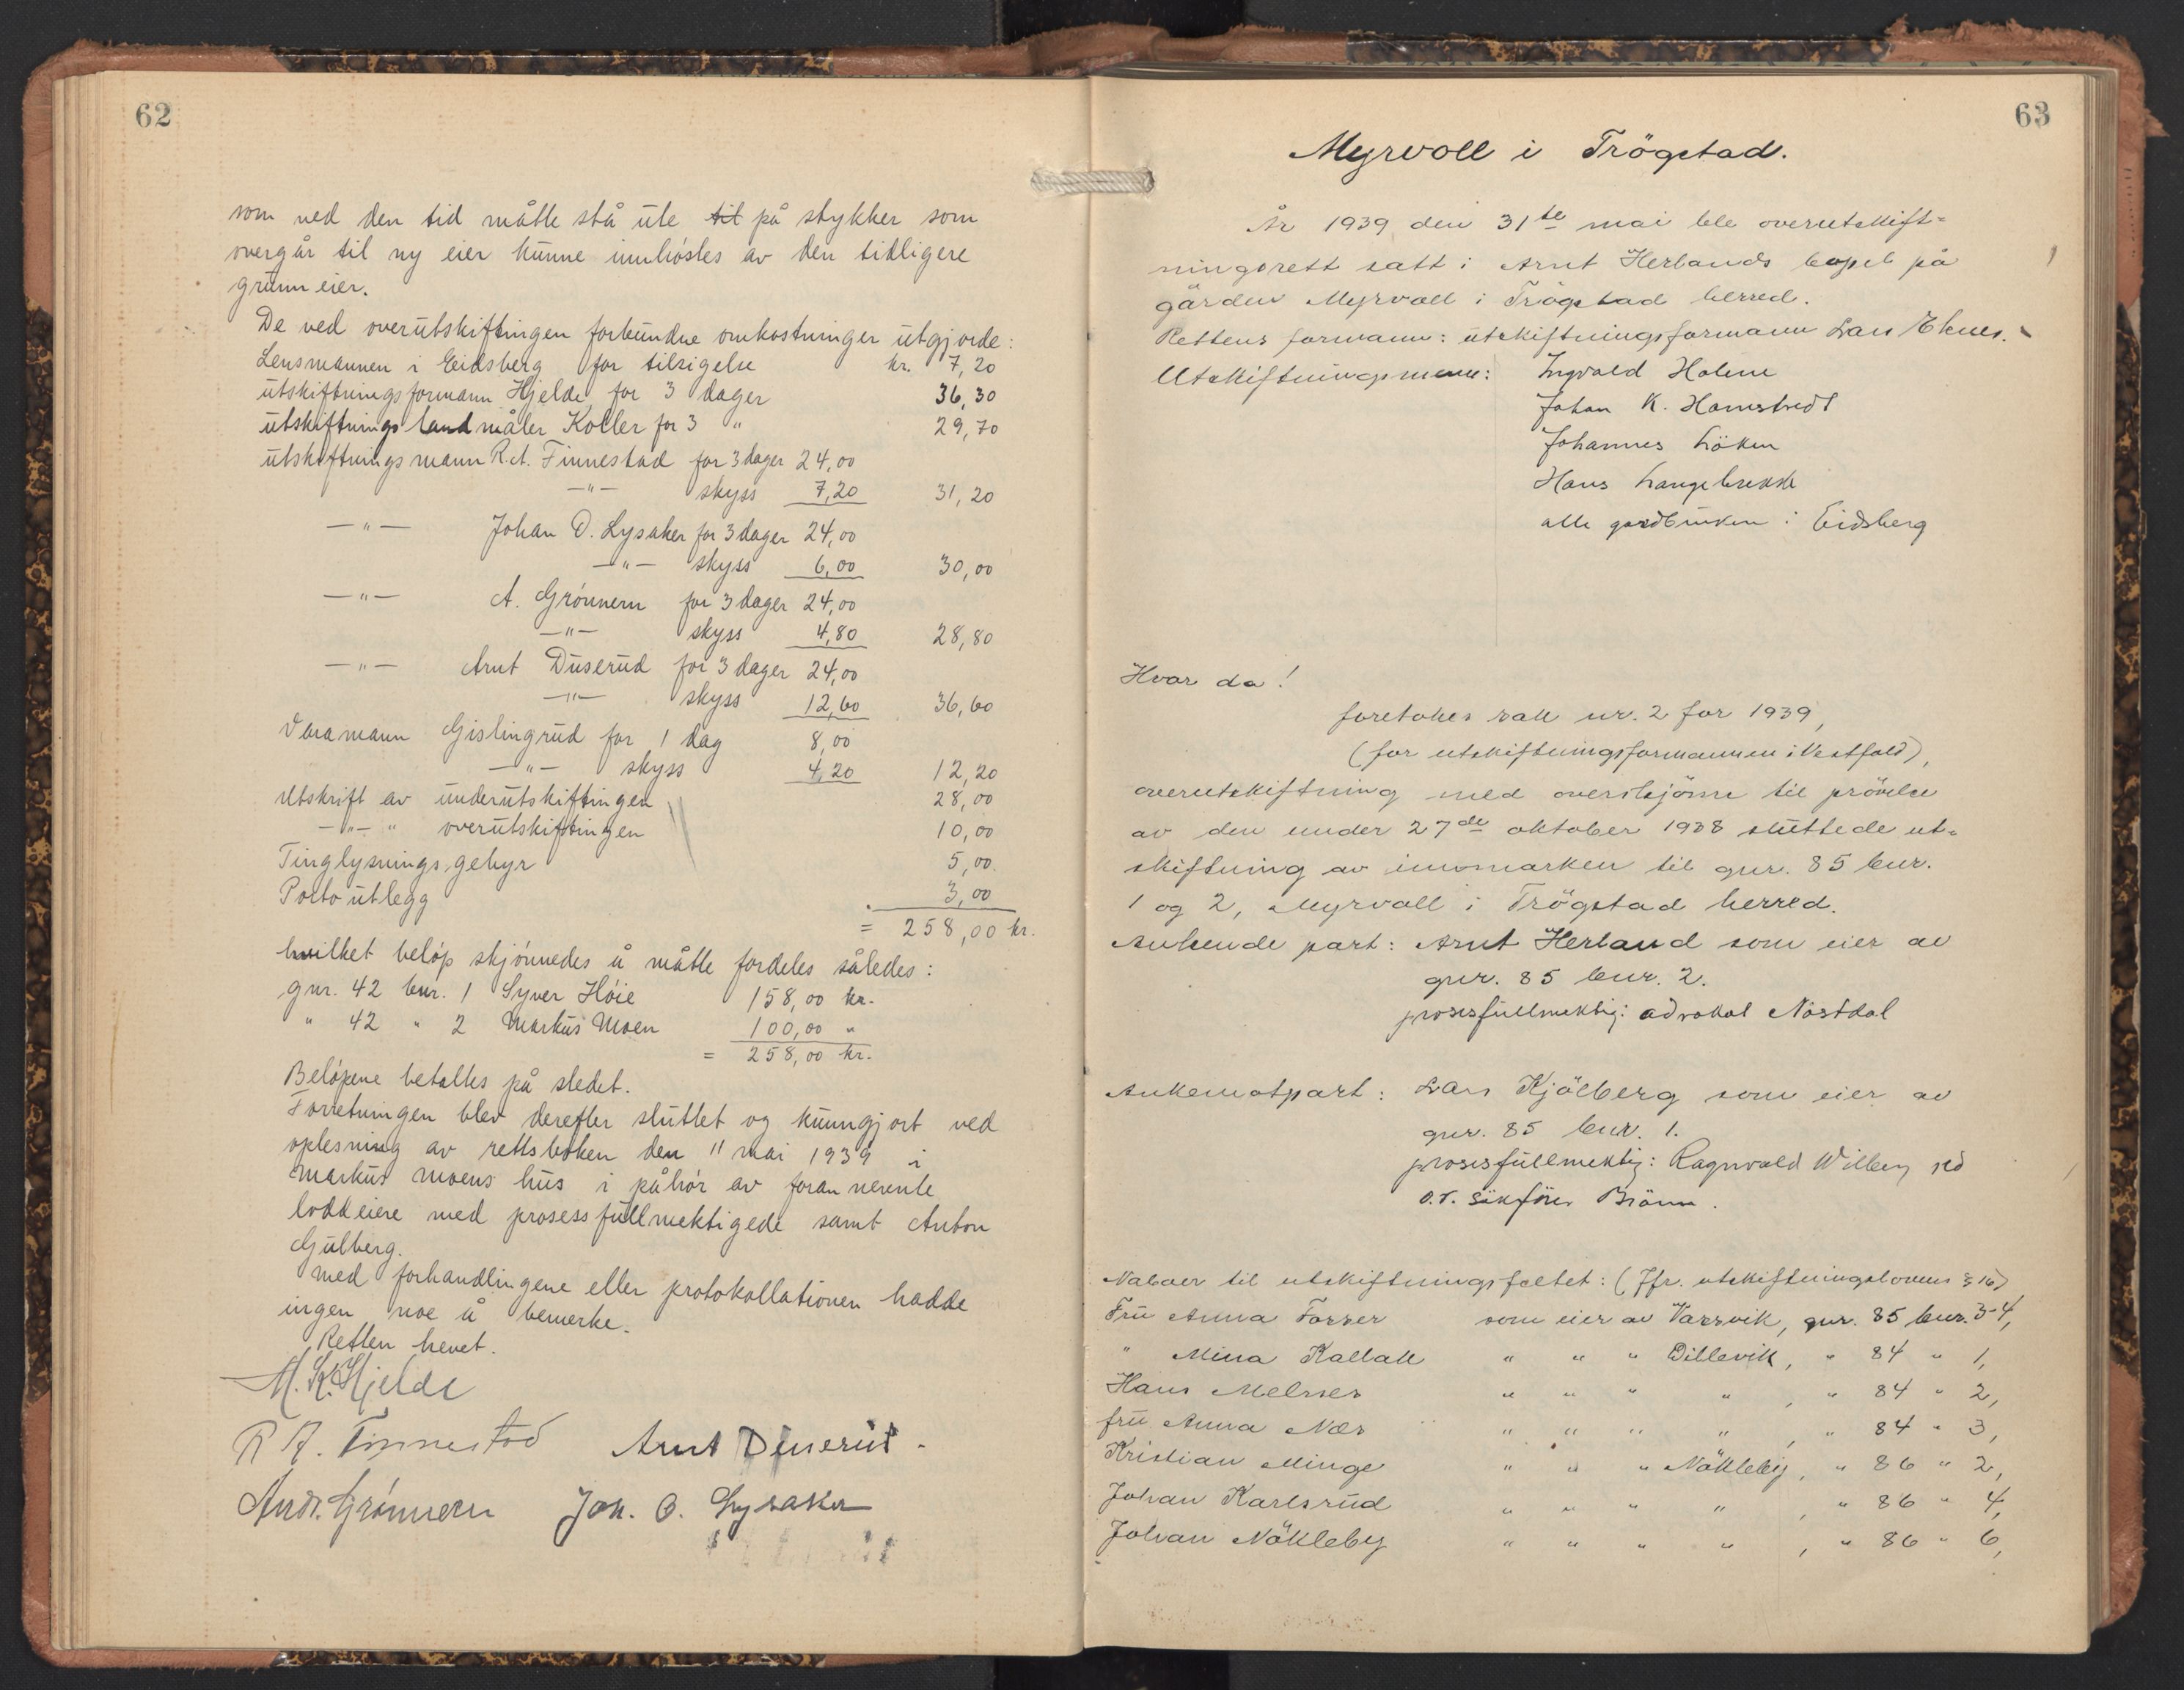 62
som ved den tid måtte stå ute til på stykker som
overgår til ny eier kunne innhøstes av den tidligere
grunneier.
De ved overutskiftningen forbundne omkostninger utgjorde:
Lensmannen i Eidsberg for tilsigelse kr. 7,20
utskiftningsformann Hjelde for 3 dager 36,30
utskiftningslandmåler Koller for 3 " 29,70
utskiftningsmann R.A. Finnestad for 3 dager 24,00
—"— skyss 7,20 31,20
—"— Johan O. Lysaker for 3 dager 24,00
—"— skyss 6,00 30,00
—"— A. Grønnern for 3 dager 24,00
—"— skyss 4,80 28,80
—"— Arnt Duserud for 3 dager 24,00
—"— skyss 12,60 36,60
Varamann Gislingrud for 1 dag 8,00
—"— skyss 4,20 12,20
Utskrift av underutskiftingen 28,00
—"— " overutskiftingen 10,00
Tinglysnings gebyr 5,00
Porto utlegg 3,00
= 258,00 kr.
hvilket beløp skjønnedes å måtte fordeles således:
gnr. 42 bnr. 1 Syver Høie 158,00 kr.
" 42 " 2 Markus Moen 100,00 "
= 258,00 kr.
Beløpene betaltes på stedet.
Forretningen blev derefter sluttet og kunngjort ved
oplesning av rettsboken den 11 mai 1939 i
Markus Moens hus i påhør av forannevnte
loddeiere med prosessfullmektigede samt Anton
Gulberg.
Med forhandlingene eller protokollationen hadde
ingen noe å bemerke.
Retten hevet.
M. K. Hjelde
R A. Finnestad Arnt Duserud.
Andr. Grønnern Joh. O. Lysaker
63
Myrvoll i Trögstad.
År 1939 den 31te mai ble overutskift-
ningsrett satt i Arnt Herlands bopel på
gården Myrvoll i Trögstad herred.
Rettens formann: utskiftningsformann Lars Eknes.
Utskiftningsmenn: Ingvald Holene
Johan K. Hamstvedt
Johannes Löken
Hans Langebrekke
alle gardbruker i Eidsberg
Hvor da!
foretokes sak nr. 2 for 1939,
(for utskiftningsformannen i Vestfold),
overutskiftning med overskjönn til prövelse
av den under 27de oktober 1938 sluttede ut-
skiftning av innmarken til gnr. 85 bnr.
1 og 2, Myrvoll i Trögstad herred.
Ankende part: Arnt Herland som eier av
gnr. 85 bnr. 2.
prosessfullmektig: advokat Nöstdal
Ankemotpart: Lars Kjölberg som eier av
gnr. 85 bnr. 1.
prosessfullmektig: Ragnvald Wilberg ved
o.r. sakförer Brönn.
Naboer til utskiftningsfeltet: (Jfr. utskiftningslovens § 16)
Fru Anna Forser som eier av Varsvik, gnr. 85 bnr. 3-4,
" Mina Kallak " " " Dillevik, " 84 " 1,
Hans Melnes " " " " , " 84 " 2,
fru Anna Næs " " " " , " 84 " 3,
Kristian Minge " " " Nökleby, " 86 " 2,
Johan Karlsrud " " " " , " 86 " 4,
Johan Nökleby " " " " , " 86 " 6,